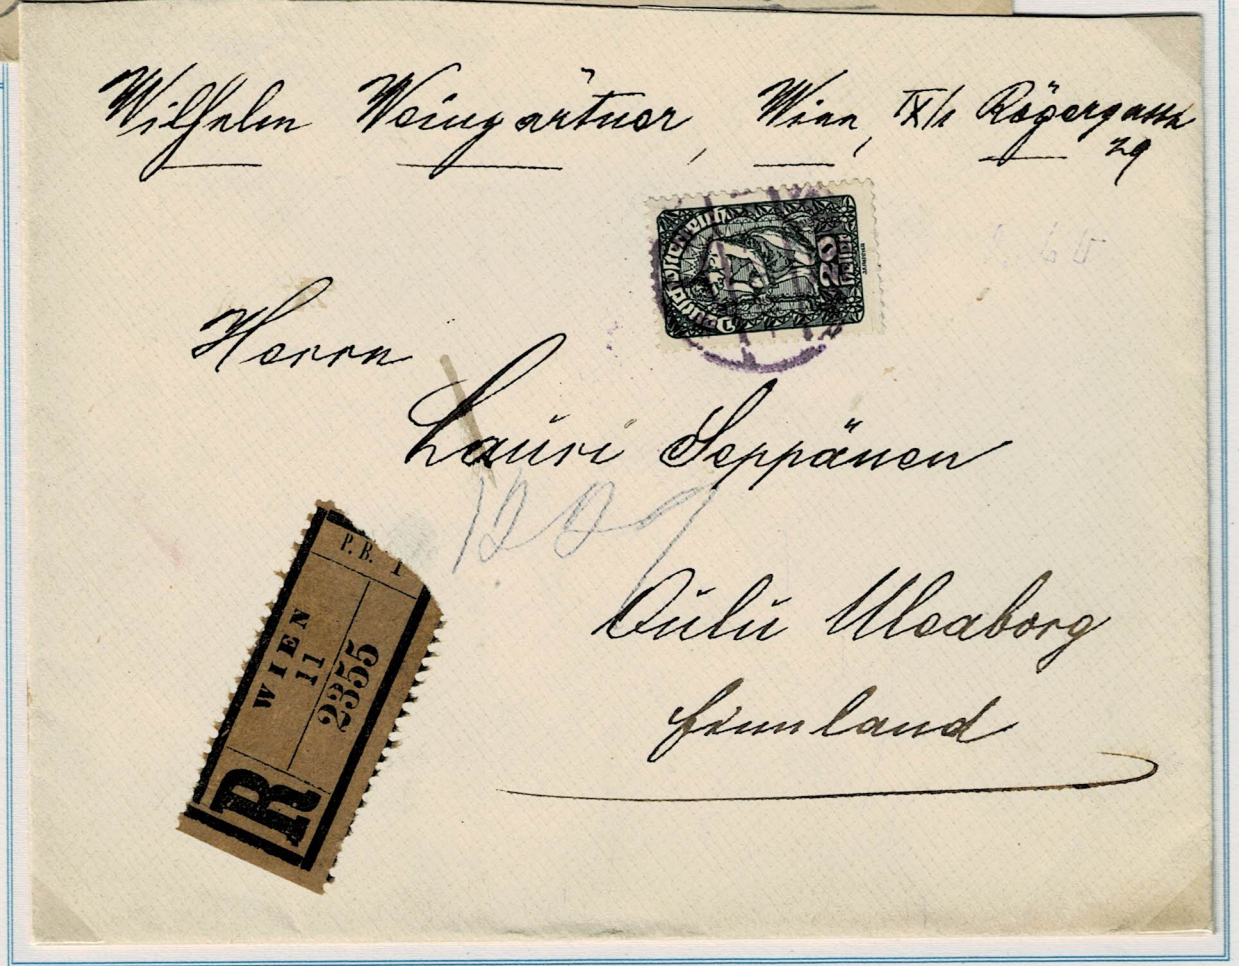 Wilhelm Weingärtner, Wien, IX/1 Rögergasse
29
Deutschösterreich
20
Heller
Herrn
Lauri Seppänen
Oulu Uleaborg
Finnland
P. B. 1
WIEN
11
2355
R